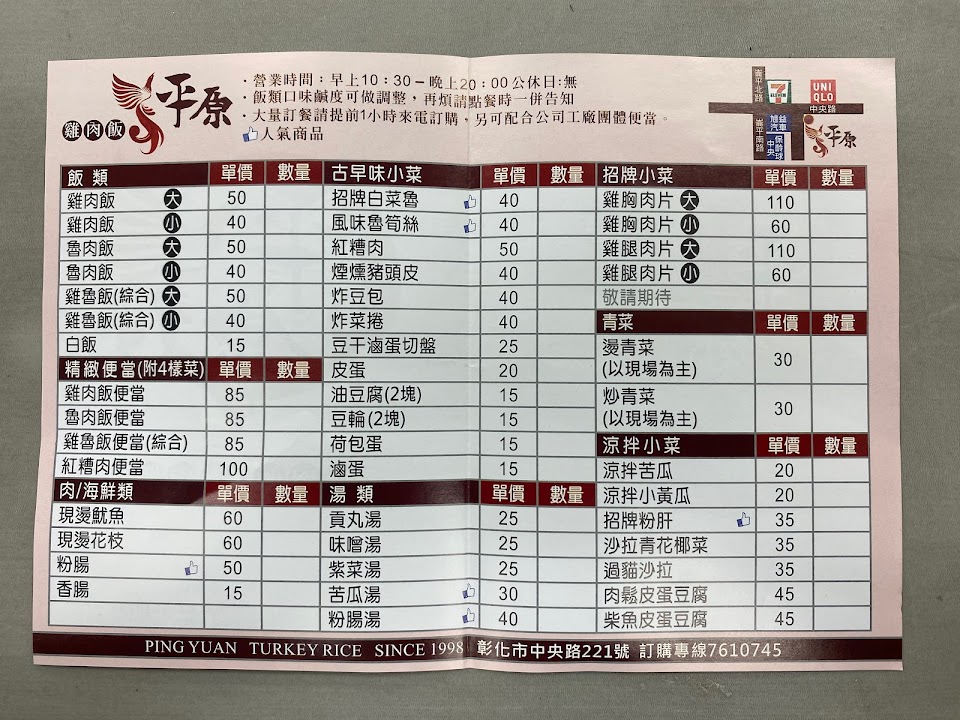 雞肉飯 平原
・營業時間：早上10：30－晚上20：00公休日:無
・飯類口味鹹度可做調整，再煩請點餐時一併告知
・大量訂餐請提前1小時來電訂購，另可配合公司工廠團體便當。
人氣商品
崇平北路 7 ELEVEN UNIQLO
中央路
崇平南路 益車旭汽 保齡球中央 平原
飯類 單價 數量
雞肉飯 大 50
雞肉飯 小 40
魯肉飯 大 50
魯肉飯 小 40
雞魯飯(綜合) 大 50
雞魯飯(綜合) 小 40
白飯 15
精緻便當(附4樣菜) 單價 數量
雞肉飯便當 85
魯肉飯便當 85
雞魯飯便當(綜合) 85
紅糟肉便當 100
肉/海鮮類 單價 數量
現燙魷魚 60
現燙花枝 60
粉腸 50
香腸 15
古早味小菜 單價 數量
招牌白菜魯 40
風味魯筍絲 40
紅糟肉 50
煙燻豬頭皮 40
炸豆包 40
炸菜捲 40
豆干滷蛋切盤 25
皮蛋 20
油豆腐(2塊) 15
豆輪(2塊) 15
荷包蛋 15
滷蛋 15
湯類 單價 數量
貢丸湯 25
味噌湯 25
紫菜湯 25
苦瓜湯 30
粉腸湯 40
招牌小菜 單價 數量
雞胸肉片 大 110
雞胸肉片 小 60
雞腿肉片 大 110
雞腿肉片 小 60
敬請期待
青菜 單價 數量
燙青菜
(以現場為主) 30
炒青菜
(以現場為主) 30
涼拌小菜 單價 數量
涼拌苦瓜 20
涼拌小黃瓜 20
招牌粉肝 35
沙拉青花椰菜 35
過貓沙拉 35
肉鬆皮蛋豆腐 45
柴魚皮蛋豆腐 45
PING YUAN TURKEY RICE SINCE 1998 彰化市中央路221號 訂購專線7610745